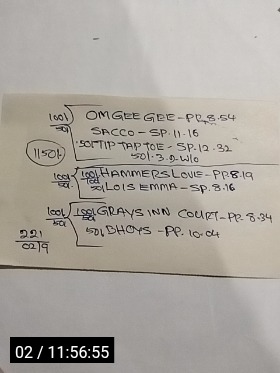 100/ OMGEEGEE-PP.8.54
50/ SACCO-SP.11.16
50/TIP TAP TOE-SP.12.32
1150/- 50/.3.D.W/O
100/ 100/HAMMERSLOUIE-PP.8.19
50/ 50/LOIS EMMA-SP.8.16
100/ 100/GRAYS INN COURT-PP.8.34
50/ 50/DHOYS-PP.10.04
221
0219
02 / 11:56:55